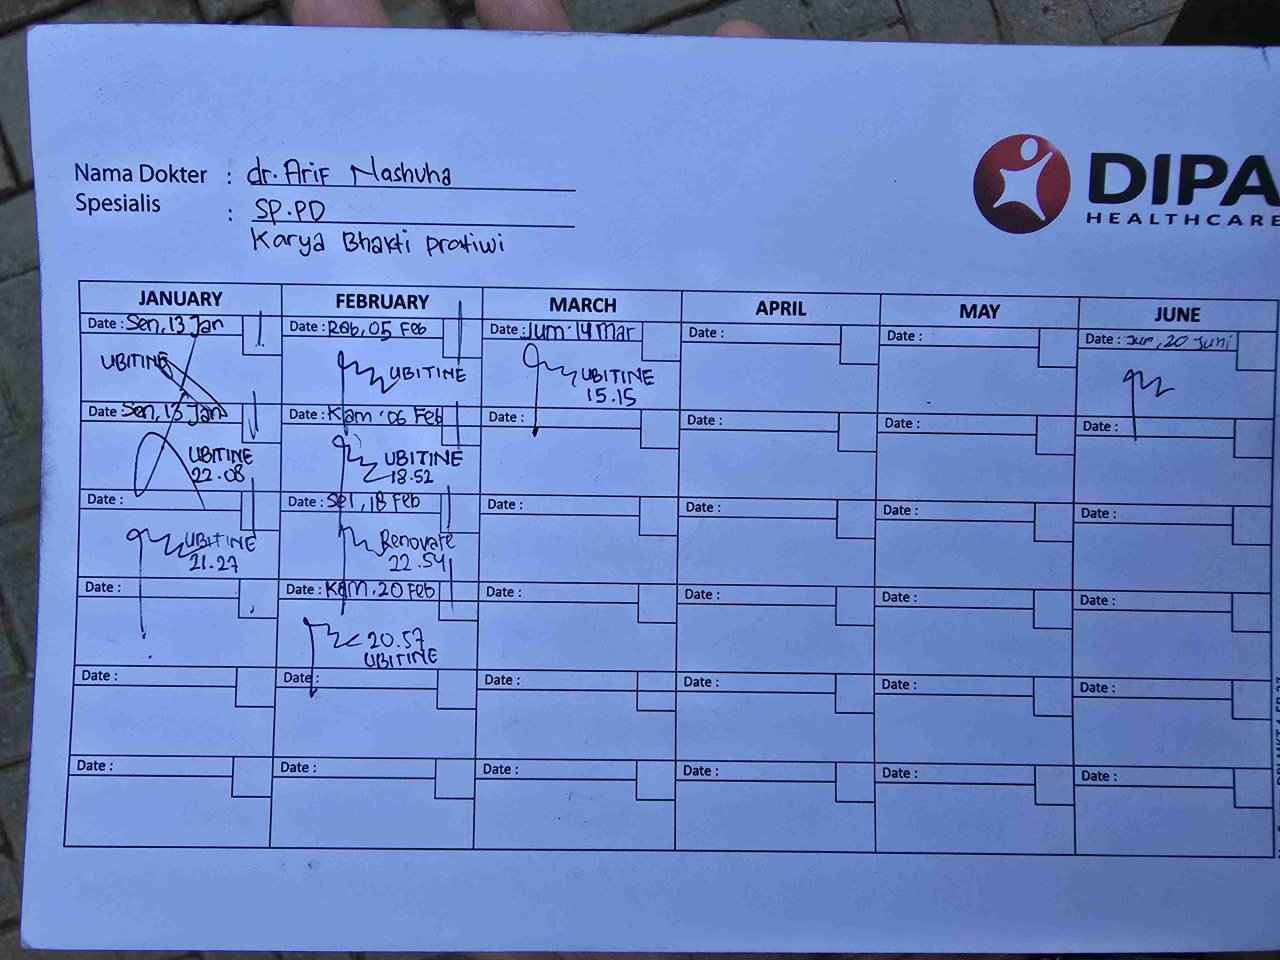 Nama Dokter : dr. Arif Nashuha
Spesialis : SP.PD
Karya Bhakti Pratiwi
DIPA
HEALTHCARE
JANUARY FEBRUARY MARCH APRIL MAY JUNE
Date : Sen, 13 Jan Date : Rab, 05 Feb Date : Jum 14 Mar Date : Date : Date : Jum, 20 Juni
UBITINE UBITINE UBITINE
15.15
Date : Sen, 13 Jan Date : Kam 06 Feb Date : Date : Date : Date :
UBITINE UBITINE
22.08 18.52
Date : Date : Sel, 18 Feb Date : Date : Date : Date :
UBITINE Renovate
21.27 22.54
Date : Date : Kam. 20 Feb Date : Date : Date : Date :
20.57
UBITINE
Date : Date : Date : Date : Date : Date :
Date : Date : Date : Date : Date : Date :